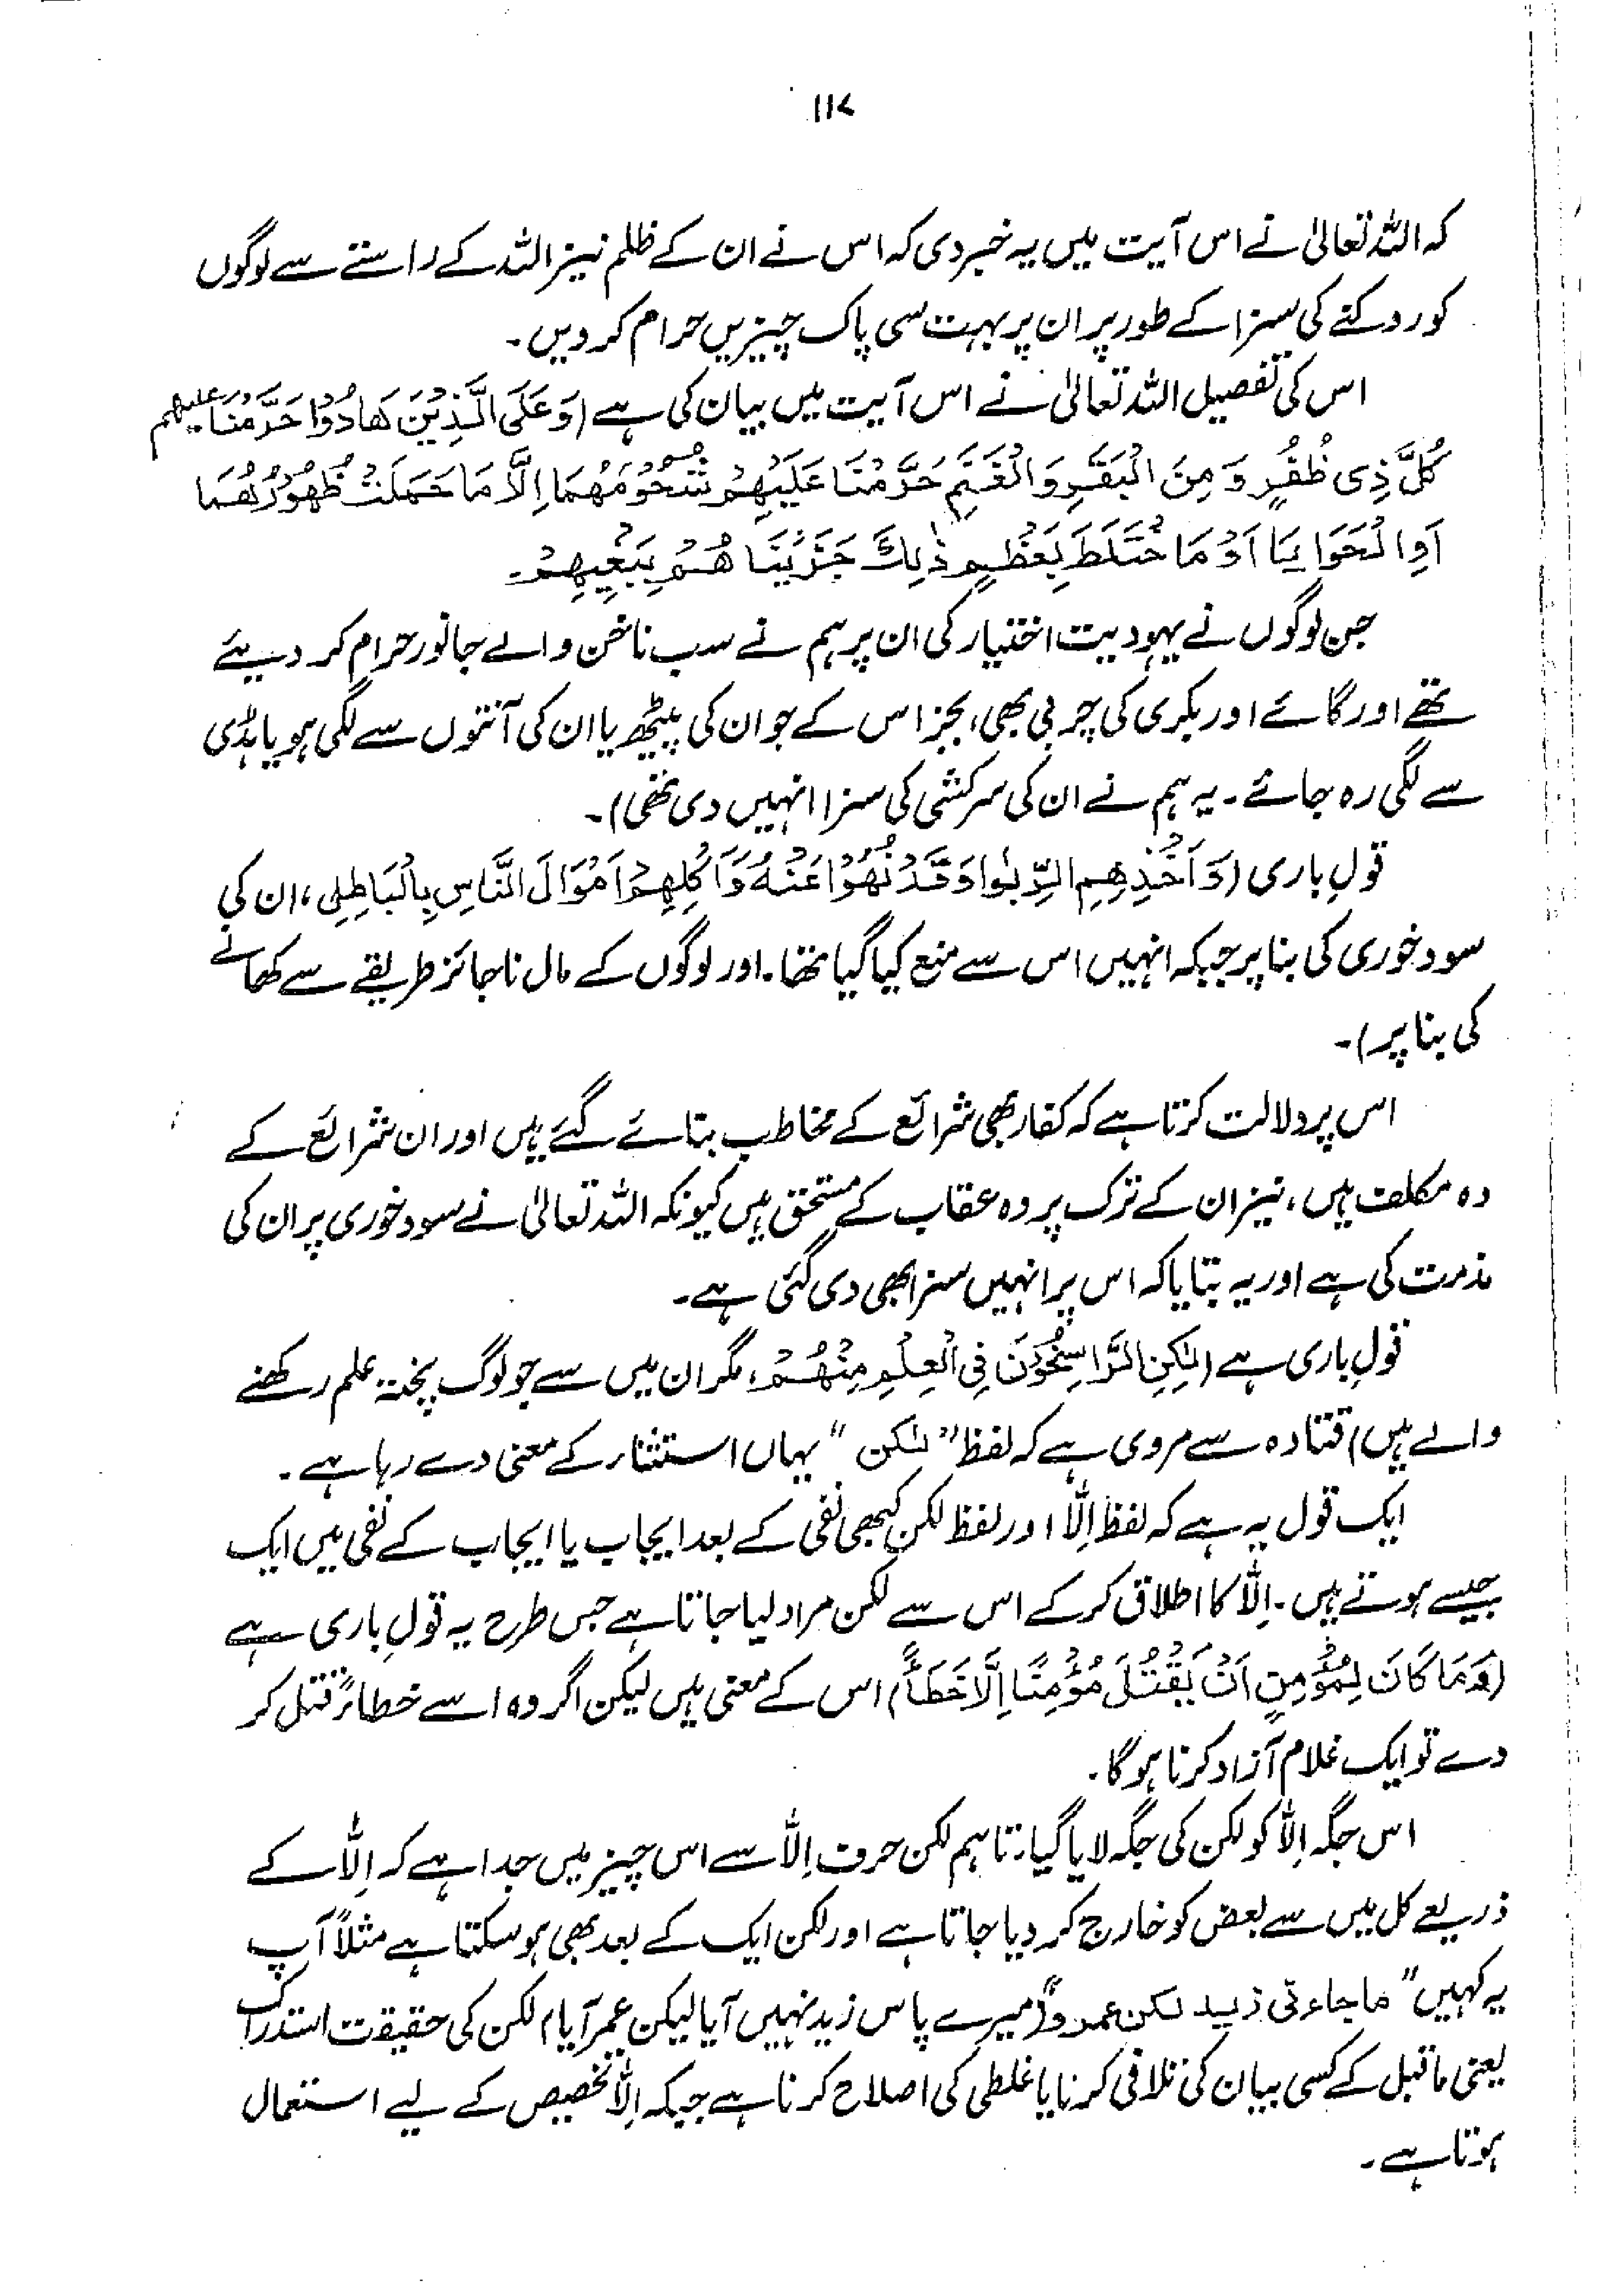 ۱۱۷
کہ اللہ تعالیٰ نے اس آیت میں یہ خبر دی کہ اس نے ان کے ظلم نیز اللہ کے راستے سے لوگوں
کو روکنے کی سزا کے طور پر ان پر بہت سی پاک چیزیں حرام کر دیں۔
اس کی تفصیل اللہ تعالیٰ نے اس آیت میں بیان کی ہے (وَعَلَی الَّذِیْنَ هَادُوْا حَرَّمْنَا علیھم
کُلَّ ذِی ظُفُرٍ وَ مِنَ الْبَقَرِ وَالْغَنَمِ حَرَّمْنَا عَلَیْهِمْ شُحُوْمَهُمَا اِلَّا مَا حَمَلَتْ ظُهُوْرُهُمَا
اَوِ الْحَوَایَا اَوْ مَا خْتَلَطَ بِعَظْمٍ ذٰلِكَ جَزَیْنَا هُمْ بِبَغْیِهِمْ۔
جن لوگوں نے یہودیت اختیار کی ان پر ہم نے سب ناخن والے جانور حرام کر دیئے
تھے اور گائے اور بکری کی چربی بھی، بجز اس کے جو ان کی پیٹھ یا ان کی آنتوں سے لگی ہو یا ہڈی
سے لگی رہ جائے۔ یہ ہم نے ان کی سرکشی کی سزا انہیں دی تھی)۔
قولِ باری (وَاَخْذِهِمِ الرِّبٰوا وَقَدْ نُهُوْا عَنْهُ وَاَکْلِهِمْ اَمْوَالَ النَّاسِ بِالْبَاطِلِ، ان کی
سود خوری کی بنا پر جبکہ انہیں اس سے منع کیا گیا تھا۔ اور لوگوں کے مال ناجائز طریقے سے کھانے
کی بنا پر)۔
اس پر دلالت کرتا ہے کہ کفار بھی شرائع کے مخاطب بنائے گئے ہیں اور ان شرائع کے
وہ مکلف ہیں، نیز ان کے ترک پر وہ عقاب کے مستحق ہیں کیونکہ اللہ تعالیٰ نے سود خوری پر ان کی
مذمت کی ہے اور یہ بتایا کہ اس پر انہیں سزا بھی دی گئی ہے۔
قولِ باری ہے (لٰکِنِ الرَّاسِخُوْنَ فِی الْعِلْمِ مِنْهُمْ، مگر ان میں سے جو لوگ پختہ علم رکھنے
والے ہیں) قتادہ سے مروی ہے کہ لفظ "لٰکن" یہاں استثناء کے معنی دے رہا ہے۔
ایک قول یہ ہے کہ لفظ اِلّا اور لفظ لکن کبھی نفی کے بعد ایجاب یا ایجاب کے نفی میں ایک
جیسے ہوتے ہیں۔ اِلّا کا اطلاق کر کے اس سے لکن مراد لیا جاتا ہے جس طرح یہ قولِ باری ہے
(وَمَا کَانَ لِمُؤْمِنٍ اَنْ یَقْتُلَ مُؤْمِنًا اِلَّا خَطَأً) اس کے معنی ہیں لیکن اگر وہ اسے خطاءً قتل کر
دے تو ایک غلام آزاد کرنا ہوگا۔
اس جگہ اِلّا کو لکن کی جگہ لایا گیا۔ تاہم لکن حرف اِلّا سے اس چیز میں جدا ہے کہ اِلّا کے
ذریعے کل میں سے بعض کو خارج کر دیا جاتا ہے اور لکن ایک کے بعد بھی ہو سکتا ہے مثلاً آپ
یہ کہیں "ما جاءنی زید لکن عمرو" (میرے پاس زید نہیں آیا لیکن عمر آیا) لکن کی حقیقت استدراک
یعنی ماقبل کے کسی بیان کی تلافی کرنا یا غلطی کی اصلاح کرنا ہے جبکہ اِلّا تخصیص کے لیے استعمال
ہوتا ہے۔